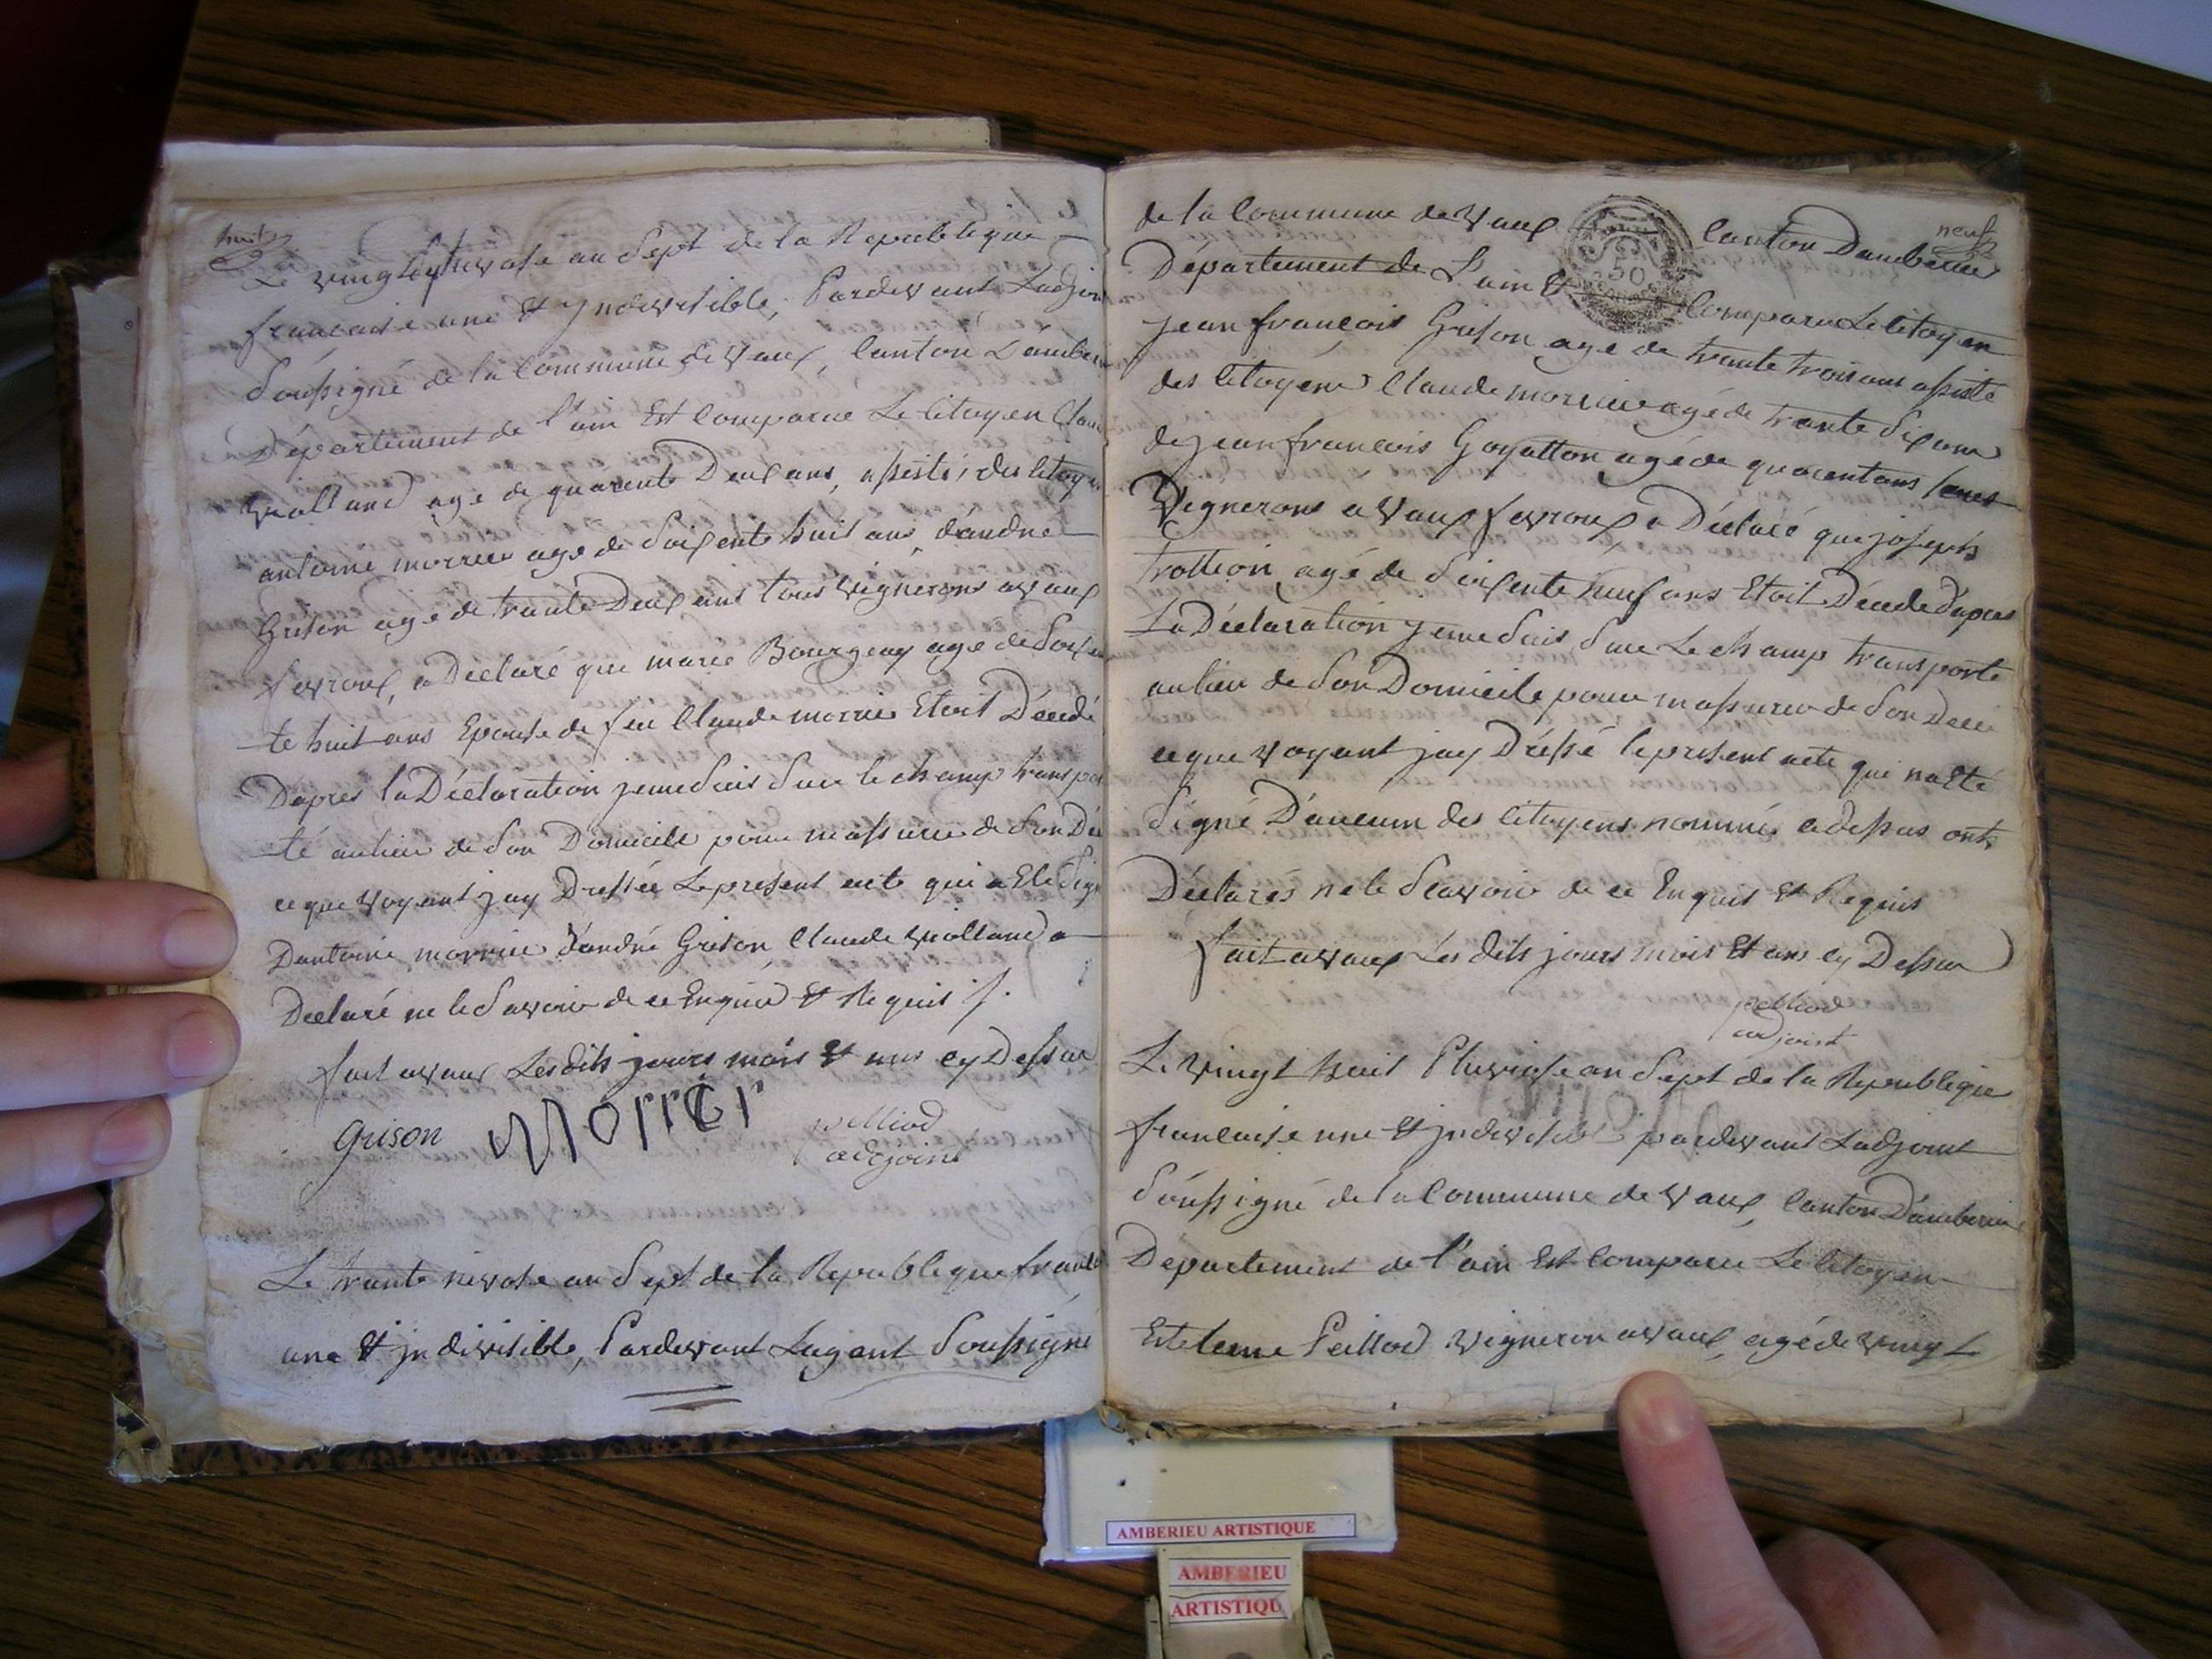 huit
Le vingt sept nivose an Sept de la Republique
francaise une Et Jndivisible, Pardevant Ladjoin
Soussigné de la Commune de Vaux, Canton Damber
Département de l'ain Est Comparue Le Citoyen Clau
Violland age de quarente Deux ans, assisté, des Citoy
antoine morrier age de Soixente huit ans, d'andre
Grison age de trante Deux ans tous Vignerons a Vaux
fevroux, a Declaré que marie Bourgeay age de Soixen
te huit ans Epouse de feu Claude morrier Etoit Décedé
D'apres la Déclaration je me Suis Sur le champ transpor
té au lieu de Son Domicile pour massurer de Son Dé
ce que Voyant jay Dressée Le present acte qui a Eté Sign
Dantoine morrier d'andré Grison, Claude Violland a
Declaré ne le Savoir de ce Enquis Et Requis ./.
fait a Vaux Les dits jours mois Et ans cy Dessus
Grison morrier pelliod
adjoint
Le trante nivose an Sept de la Republique francai
une Et jndivisible, Pardevant Lagent Soussigné
neuf
de la Commune de Vaux Canton Damberieu
50
Département de L'ain Et Comparu Le Citoyen
jean françois Grison age de trante trois ans assisté
des Citoyens Claude morrier agé de trante Six ans
de jean francois Goyatton agé de quarent ans tous
Vignerons a Vaux fevroux a Déclaré que joseph
trottion agé de Soixente neuf ans Etoit Décedé d'apres
La Déclaration je me Suis Sur Le champ transporté
au lieu de Son Domicile pour massurer de Son Décé
ce que Voyant jay Dréssé le present acte qui na Eté
Signé D'aucun des Citoyens nommés cy dessus onts
Déclarés ne le Scavoir de ce Enquis Et Requis
fait a Vaux Les dits jours mois Et ans cy Dessus
pelliod
adjoint
Le Vingt huit Pluviose an Sept de la Republique
francaise une Et jndivisible pardevant Ladjoint
Soussigné de la Commune de Vaux, Canton D'amberieu
Departement de l'ain Est Comparu Le Citoyen
Estienne Peilliod Vigneron a Vaux, agé de Vingt
AMBERIEU ARTISTIQUE
AMBERIEU
ARTISTIQU